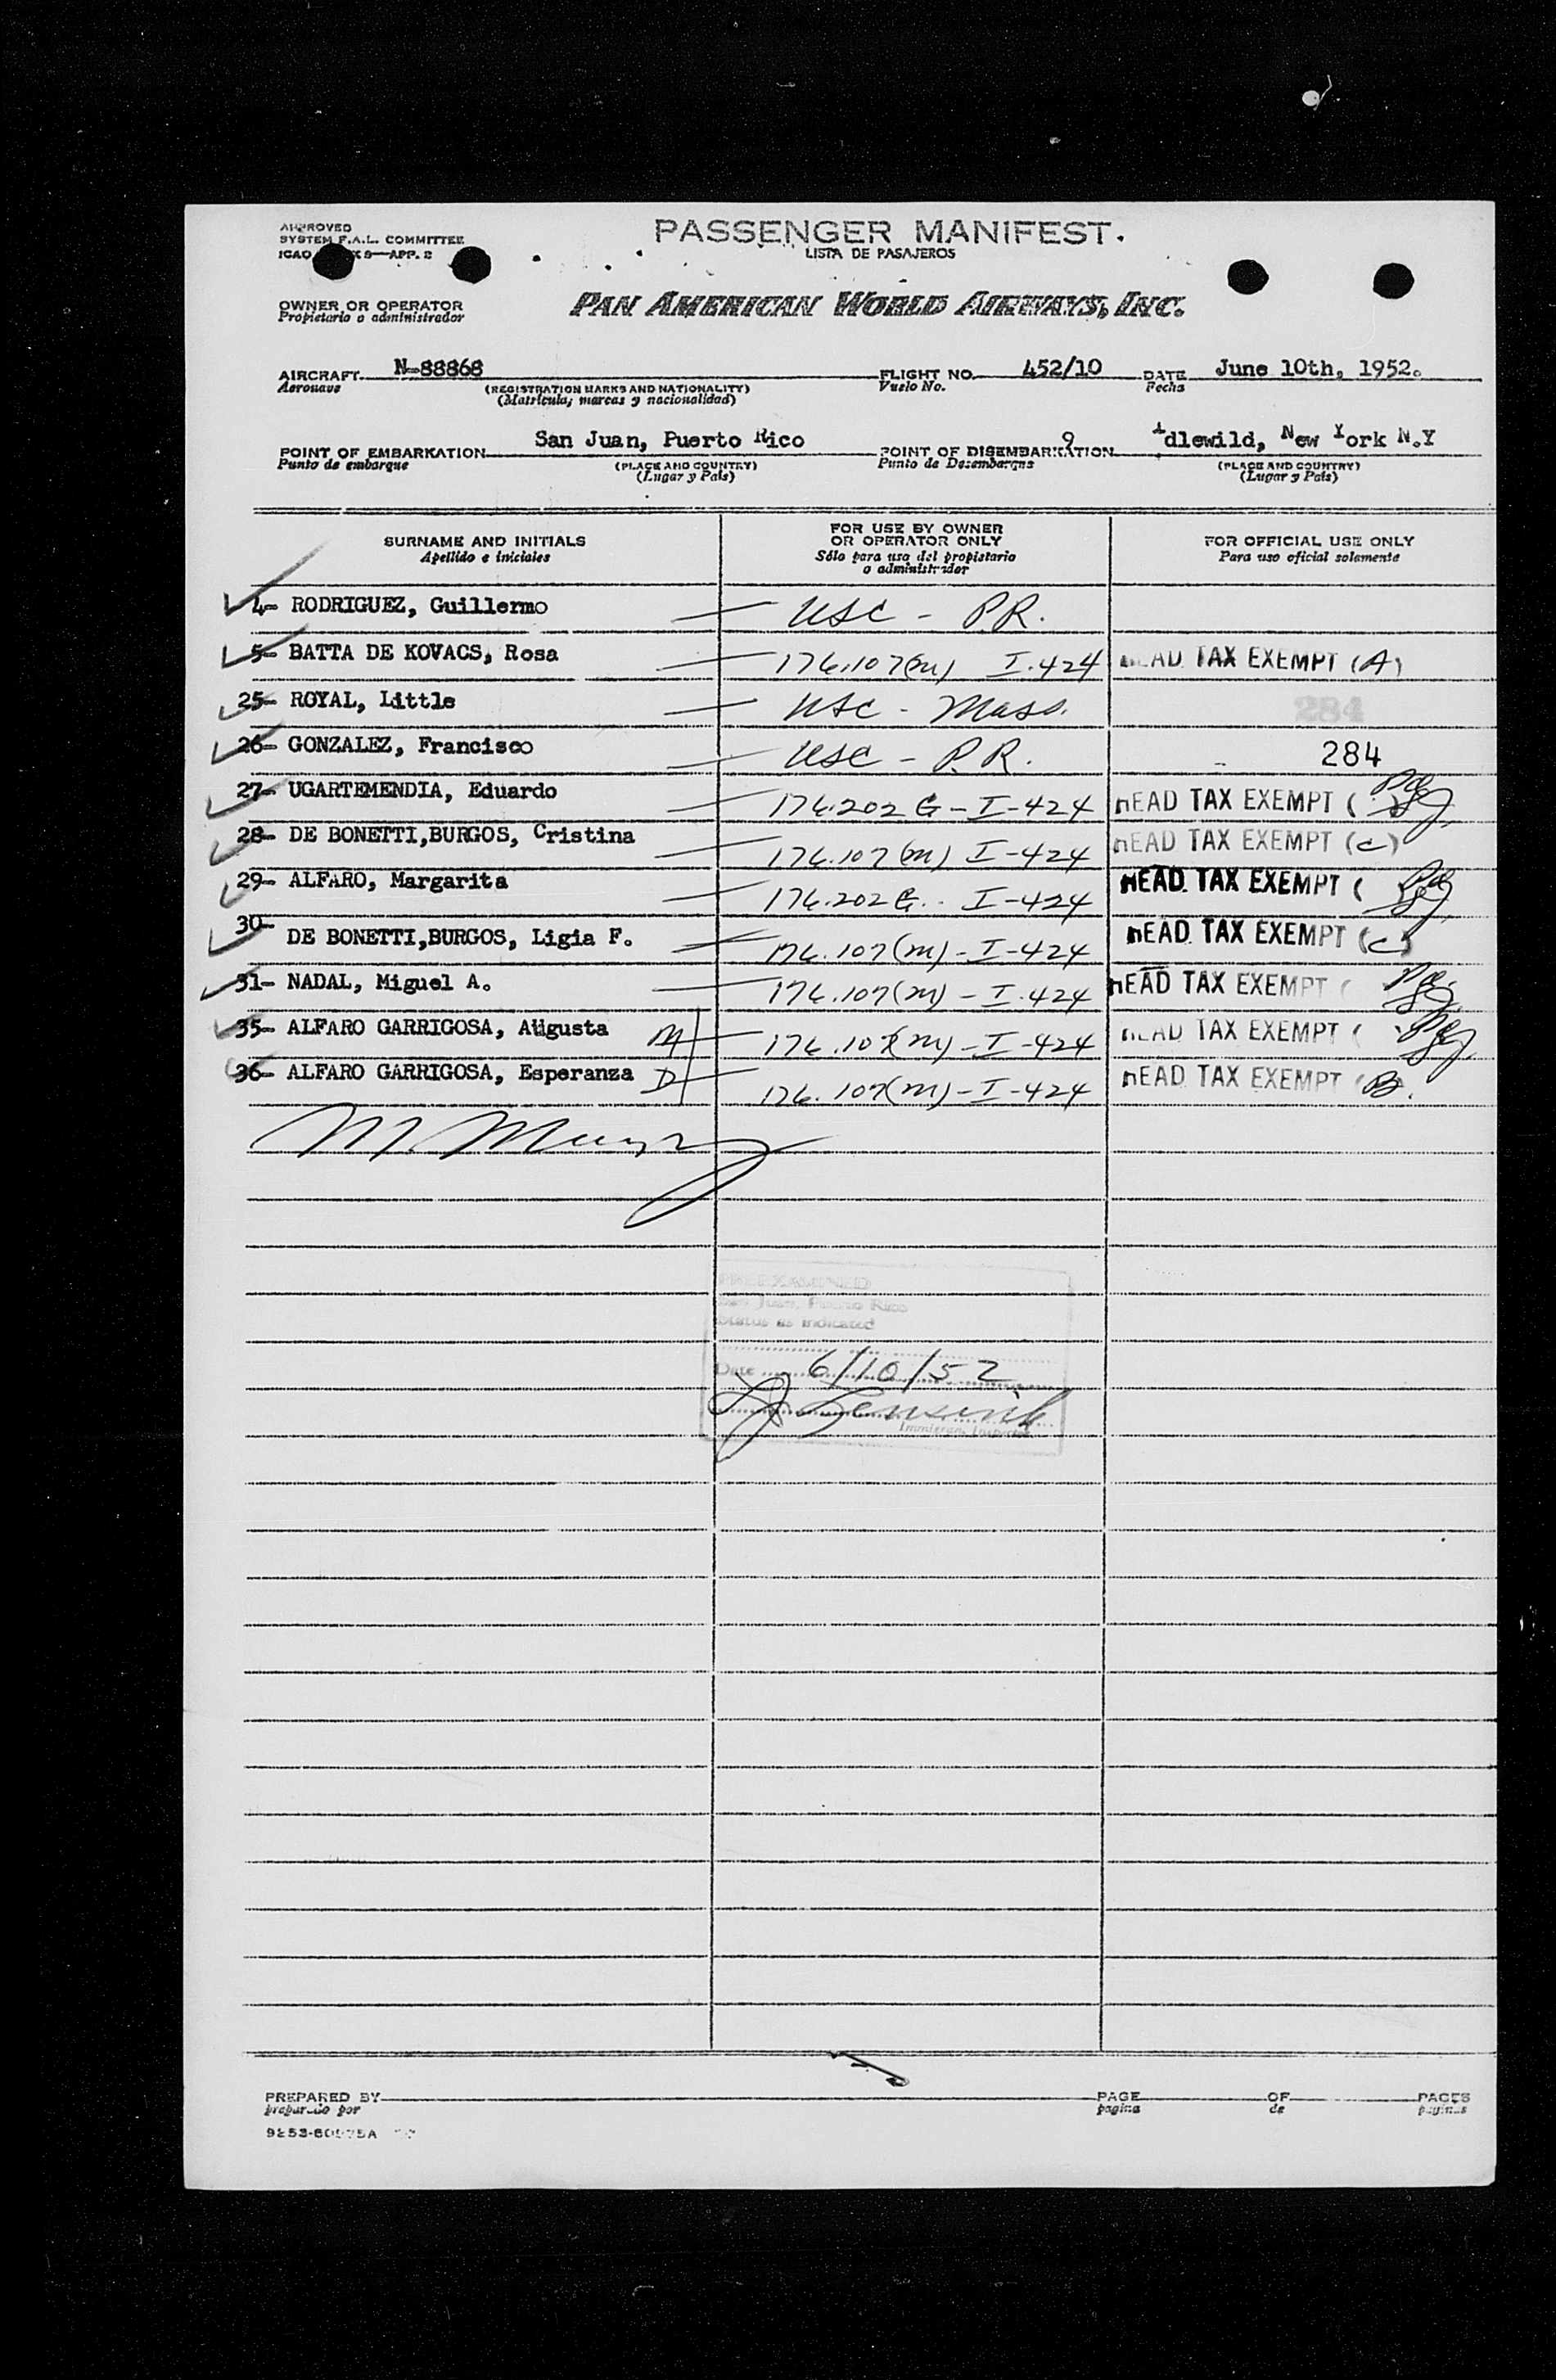 APPROVED
SYSTEM F.A.L. COMMITTEE
ICAO 9—APP. 2
PASSENGER MANIFEST.
LISTA DE PASAJEROS
OWNER OR OPERATOR
Propietario o administrador
PAN AMERICAN WORLD AIRWAYS, INC.
AIRCRAFT N-88868 FLIGHT NO. 452/10 DATE June 10th, 1952.
Aeronave (REGISTRATION MARKS AND NATIONALITY) Vuelo No. Fecha
(Matrícula, marcas y nacionalidad)
POINT OF EMBARKATION San Juan, Puerto Rico POINT OF DISEMBARKATION 9 Idlewild, New York N.Y
Punto de embarque (PLACE AND COUNTRY) Punto de Desembarque (PLACE AND COUNTRY)
(Lugar y País) (Lugar y País)
SURNAME AND INITIALS
Apellido e iniciales
FOR USE BY OWNER
OR OPERATOR ONLY
Sólo para uso del propietario
o administrador
FOR OFFICIAL USE ONLY
Para uso oficial solamente
4- RODRIGUEZ, Guillermo — USC - P.R.
5- BATTA DE KOVACS, Rosa — 176.107(m) I.424 HEAD TAX EXEMPT (A)
25- ROYAL, Little — USC - Mass. 284
26- GONZALEZ, Francisco — USC - P.R. 284
27- UGARTEMENDIA, Eduardo — 176.202 G - I-424 HEAD TAX EXEMPT (
28- DE BONETTI,BURGOS, Cristina — 176.107(m) I-424 HEAD TAX EXEMPT (c)
29- ALFARO, Margarita — 176.202 G.. I-424 HEAD TAX EXEMPT (
30- DE BONETTI,BURGOS, Ligia F. — 176.107(m)-I-424 HEAD TAX EXEMPT (c)
31- NADAL, Miguel A. — 176.107(m) - I.424 HEAD TAX EXEMPT (
35- ALFARO GARRIGOSA, Augusta M — 176.107(m)-I-424 HEAD TAX EXEMPT (
36- ALFARO GARRIGOSA, Esperanza D — 176.107(m)-I-424 HEAD TAX EXEMPT (B)
PREEXAMINED
San Juan, Puerto Rico
Status as indicated
Date 6/10/52
Immigrant Inspector
PREPARED BY PAGE OF PAGES
preparado por pagina de paginas